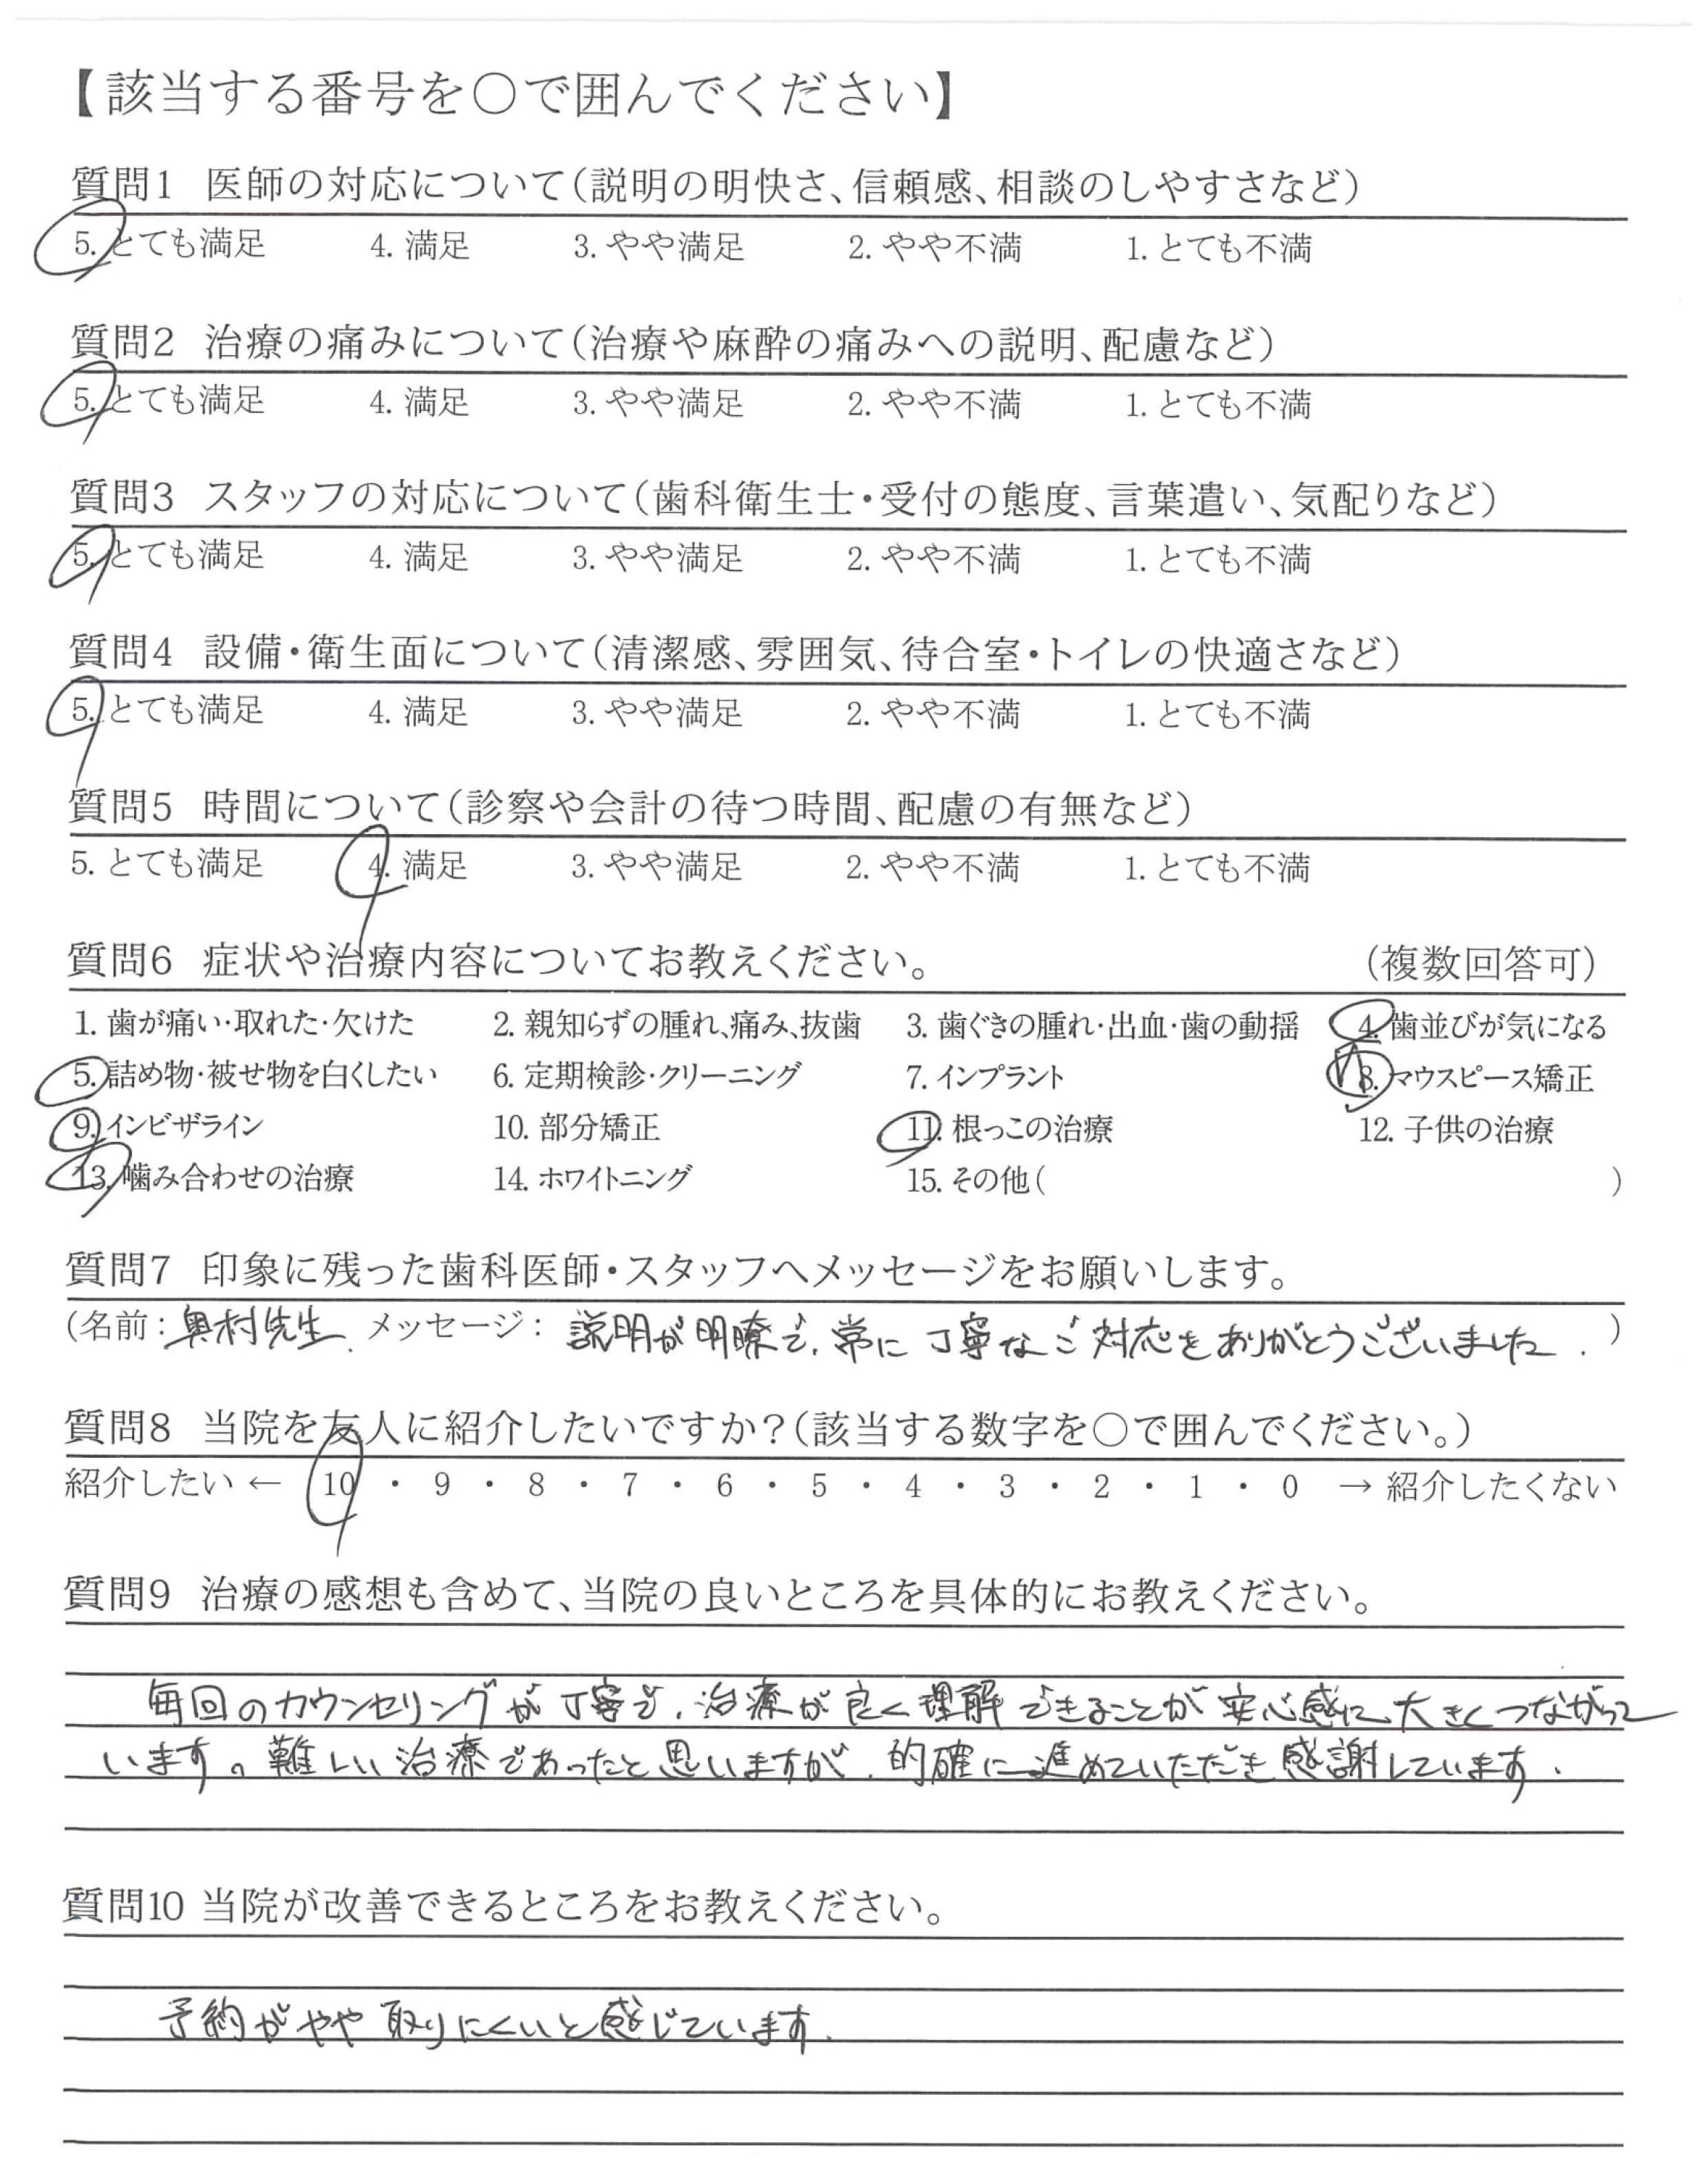 【該当する番号を○で囲んでください】
質問1 医師の対応について(説明の明快さ、信頼感、相談のしやすさなど)
5. とても満足 4. 満足 3. やや満足 2. やや不満 1. とても不満
質問2 治療の痛みについて(治療や麻酔の痛みへの説明、配慮など)
5. とても満足 4. 満足 3. やや満足 2. やや不満 1. とても不満
質問3 スタッフの対応について(歯科衛生士・受付の態度、言葉遣い、気配りなど)
5. とても満足 4. 満足 3. やや満足 2. やや不満 1. とても不満
質問4 設備・衛生面について(清潔感、雰囲気、待合室・トイレの快適さなど)
5. とても満足 4. 満足 3. やや満足 2. やや不満 1. とても不満
質問5 時間について(診察や会計の待つ時間、配慮の有無など)
5. とても満足 4. 満足 3. やや満足 2. やや不満 1. とても不満
質問6 症状や治療内容についてお教えください。 (複数回答可)
1. 歯が痛い・取れた・欠けた 2. 親知らずの腫れ、痛み、抜歯 3. 歯ぐきの腫れ・出血・歯の動揺 4. 歯並びが気になる
5. 詰め物・被せ物を白くしたい 6. 定期検診・クリーニング 7. インプラント 8. マウスピース矯正
9. インビザライン 10. 部分矯正 11. 根っこの治療 12. 子供の治療
13. 噛み合わせの治療 14. ホワイトニング 15. その他( )
質問7 印象に残った歯科医師・スタッフへメッセージをお願いします。
(名前: 奥村先生. メッセージ: 説明が明瞭で、常に丁寧なご対応をありがとうございました. )
質問8 当院を友人に紹介したいですか?(該当する数字を○で囲んでください。)
紹介したい ← 10 ・ 9 ・ 8 ・ 7 ・ 6 ・ 5 ・ 4 ・ 3 ・ 2 ・ 1 ・ 0 → 紹介したくない
質問9 治療の感想も含めて、当院の良いところを具体的にお教えください。
毎回のカウンセリングが丁寧で、治療が良く理解できることが安心感に大きくつながって
います。難しい治療であったと思いますが、的確に進めていただき感謝しています.
質問10 当院が改善できるところをお教えください。
予約がやや取りにくいと感じています.